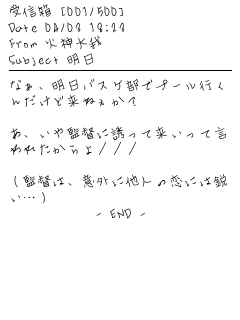 受信箱 [001/500]
Date 08/03 18:23
From 火神大我
Subject 明日
なぁ、明日バスケ部でプール行く
んだけど来ねぇか?
あ、いや監督に誘って来いって言
われたからよ///
(監督は、意外に他人の恋には鋭
い…)
- END -